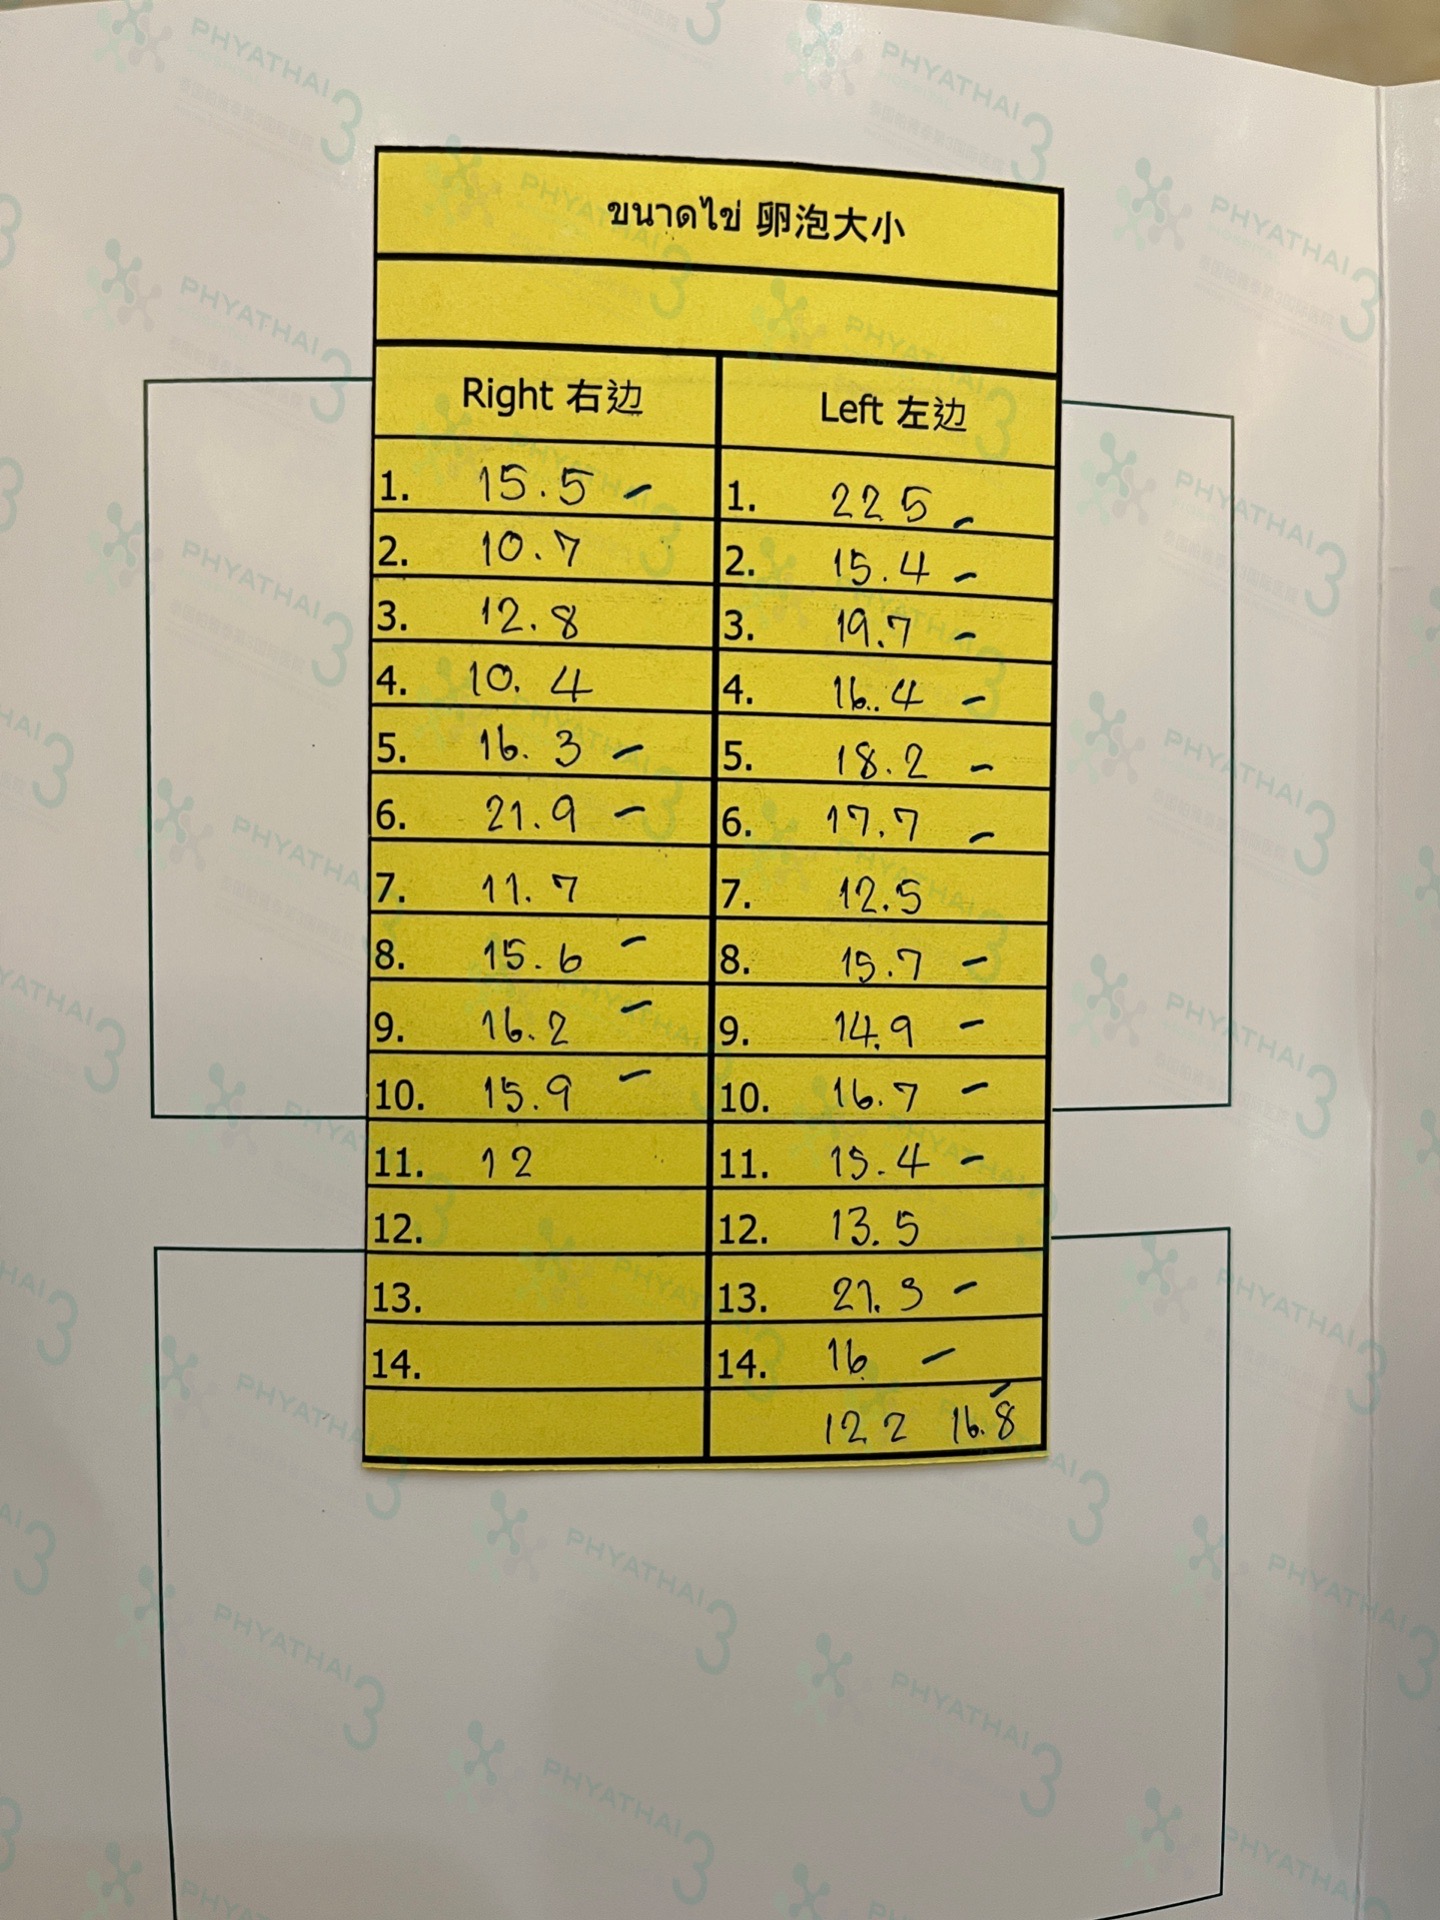 ขนาดไข่ 卵泡大小
Right 右边 Left 左边
1. 15.5 – 1. 22 5 –
2. 10.7 2. 15.4 –
3. 12.8 3. 19.7 –
4. 10. 4 4. 16..4 –
5. 16. 3 – 5. 18.2 –
6. 21.9 – 6. 17.7 –
7. 11. 7 7. 12.5
8. 15.6 – 8. 15.7 –
9. 16.2 – 9. 14.9 –
10. 15.9 – 10. 16.7 –
11. 12 11. 15.4 –
12. 12. 13.5
13. 13. 21.3 –
14. 14. 16 –
12 2 16.8 –
PHYATHAI 3